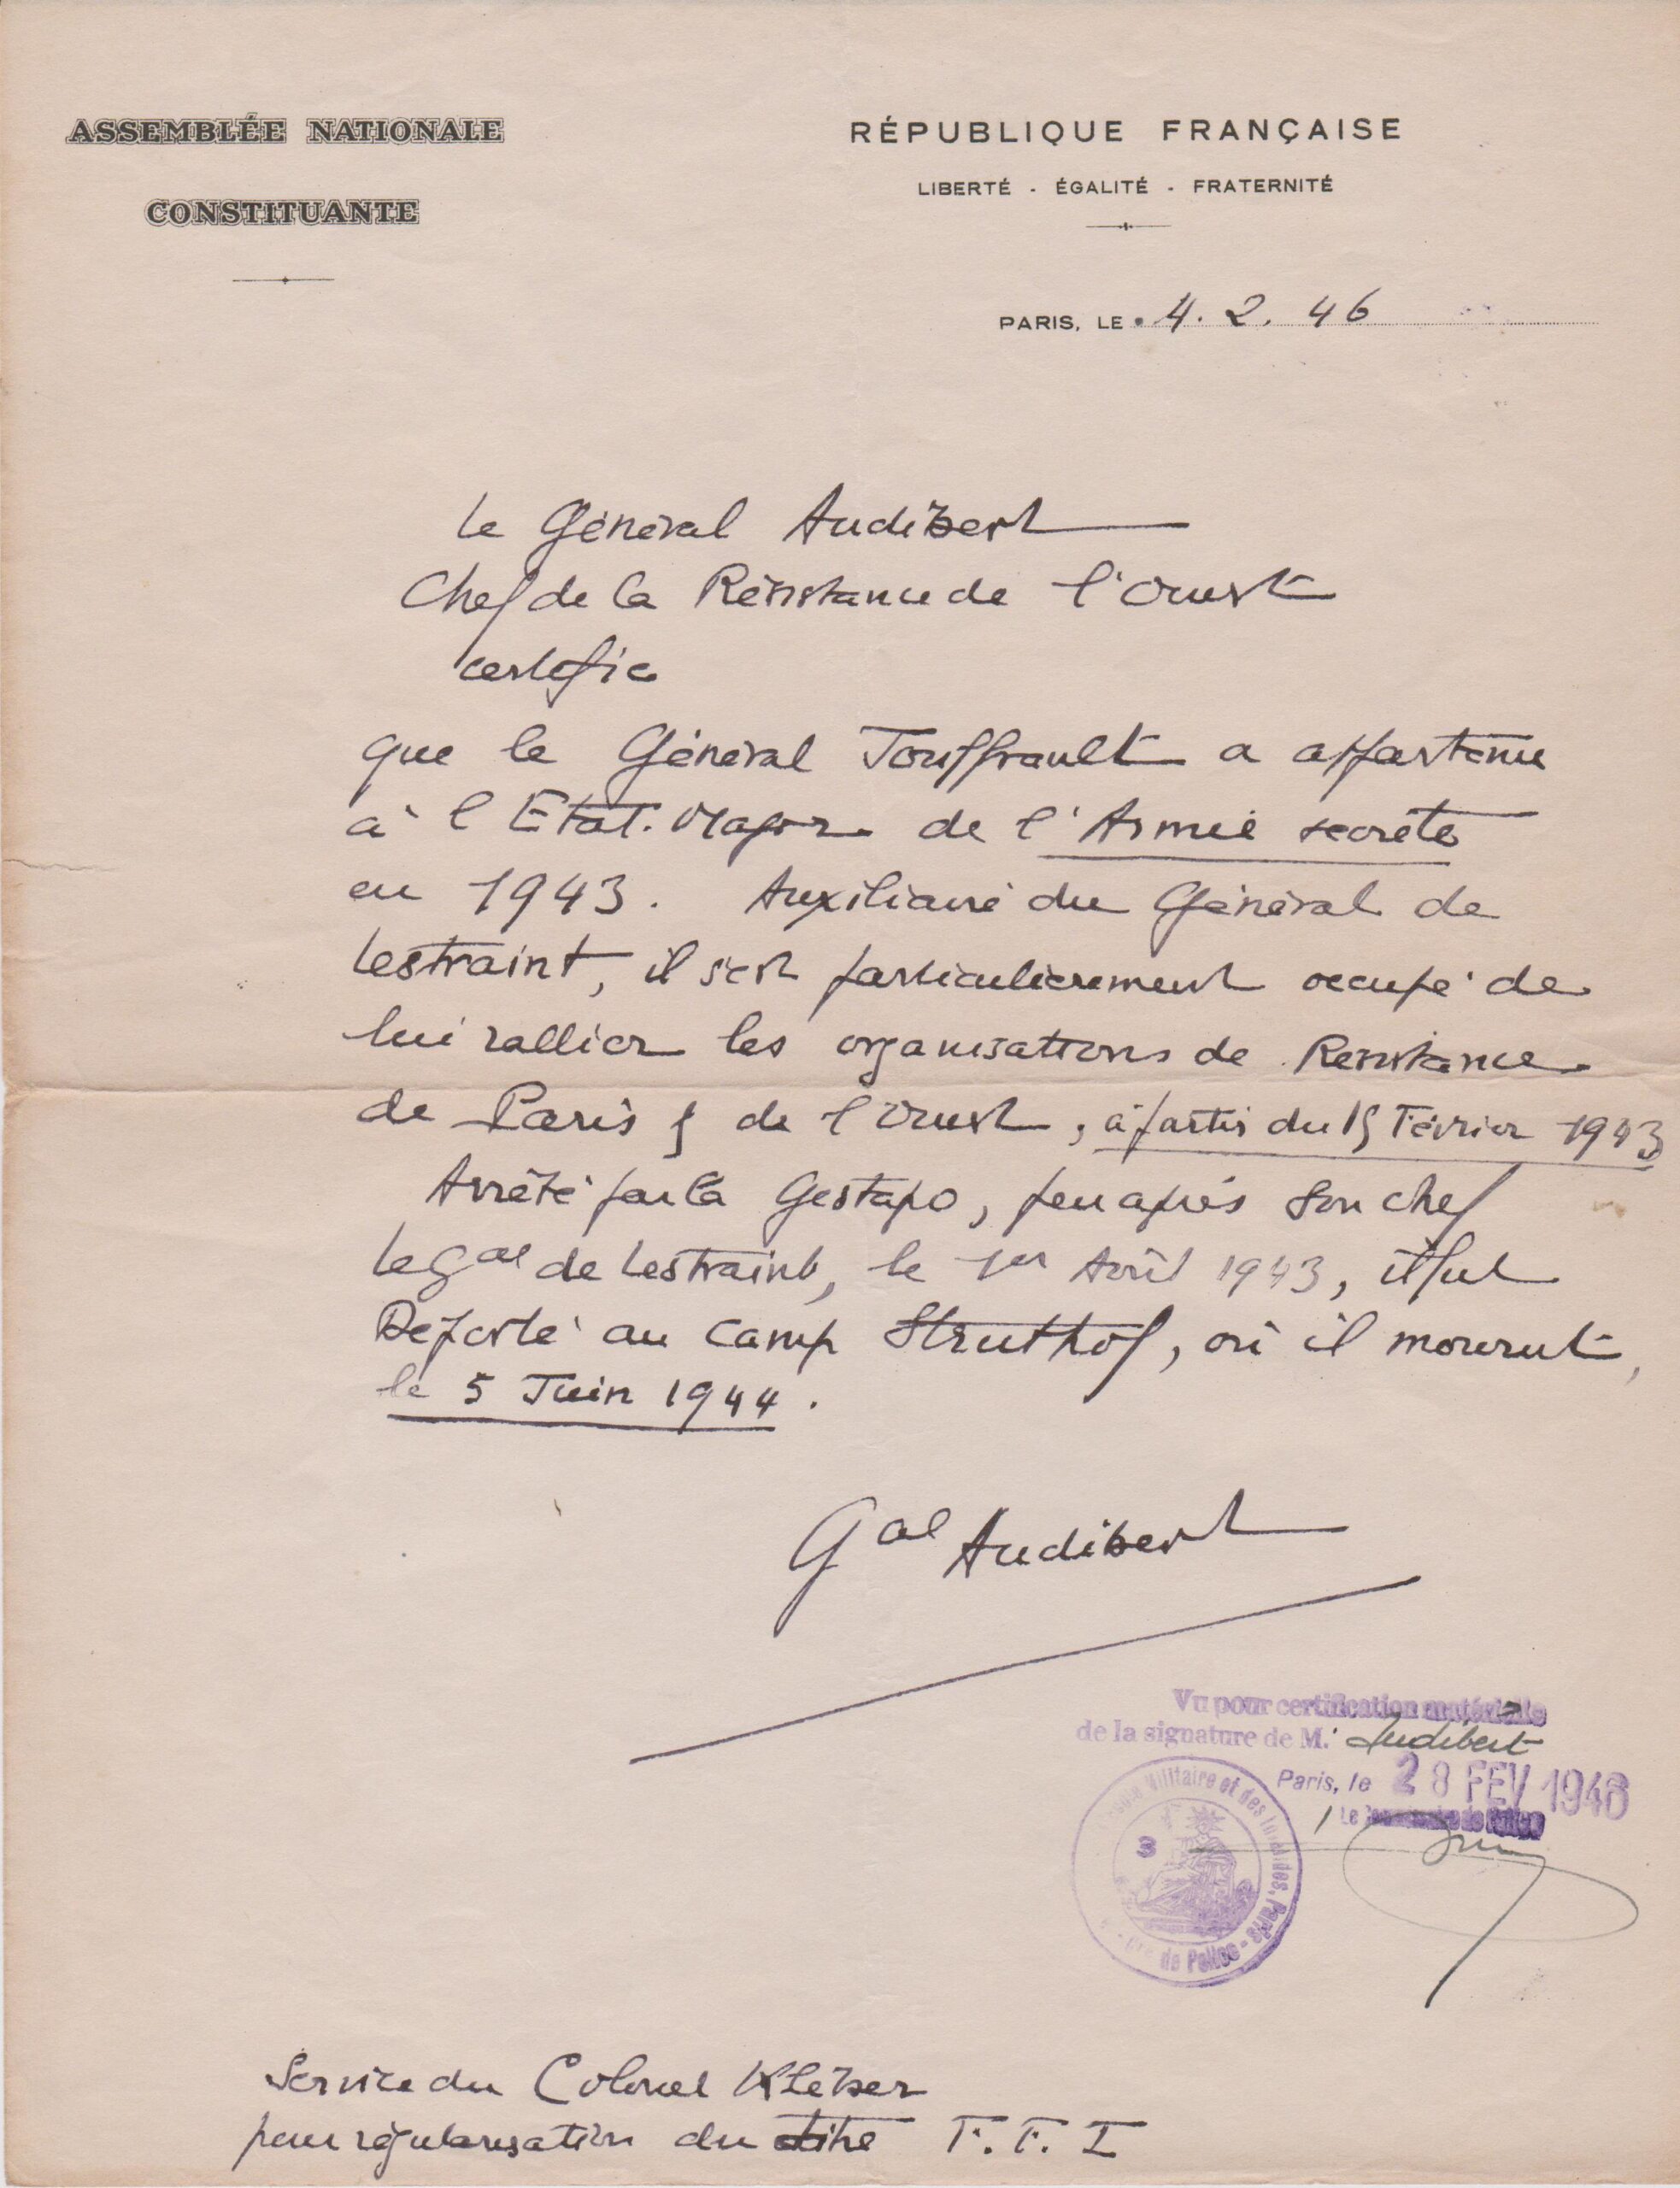 ASSEMBLÉE NATIONALE
CONSTITUANTE
RÉPUBLIQUE FRANÇAISE
LIBERTÉ - ÉGALITÉ - FRATERNITÉ
PARIS, LE 4. 2. 46
Le Général Audibert
Chef de la Résistance de l'Ouest
certifie
que le Général Jouffrault a appartenu
à l'Etat-Major de l'Armée secrète
en 1943. Auxiliaire du Général de
Lestraint, il s'est particulièrement occupé de
lui rallier les organisations de Résistance
de Paris & de l'Ouest, à partir du 15 Février 1943
Arrêté par la Gestapo, peu après son chef
le Gal de Lestraint, le 1er Avril 1943, il fut
Déporté au camp Struthof, où il mourut,
le 5 Juin 1944.
Gal Audibert
Vu pour certification matérielle
de la signature de M. Audibert
Paris, le 28 FEV 1946
Le Commissaire de Police
Militaire et des Invalides, Paris
3
de Police
Service du Colonel Kléber
pour régularisation du titre F.F.I